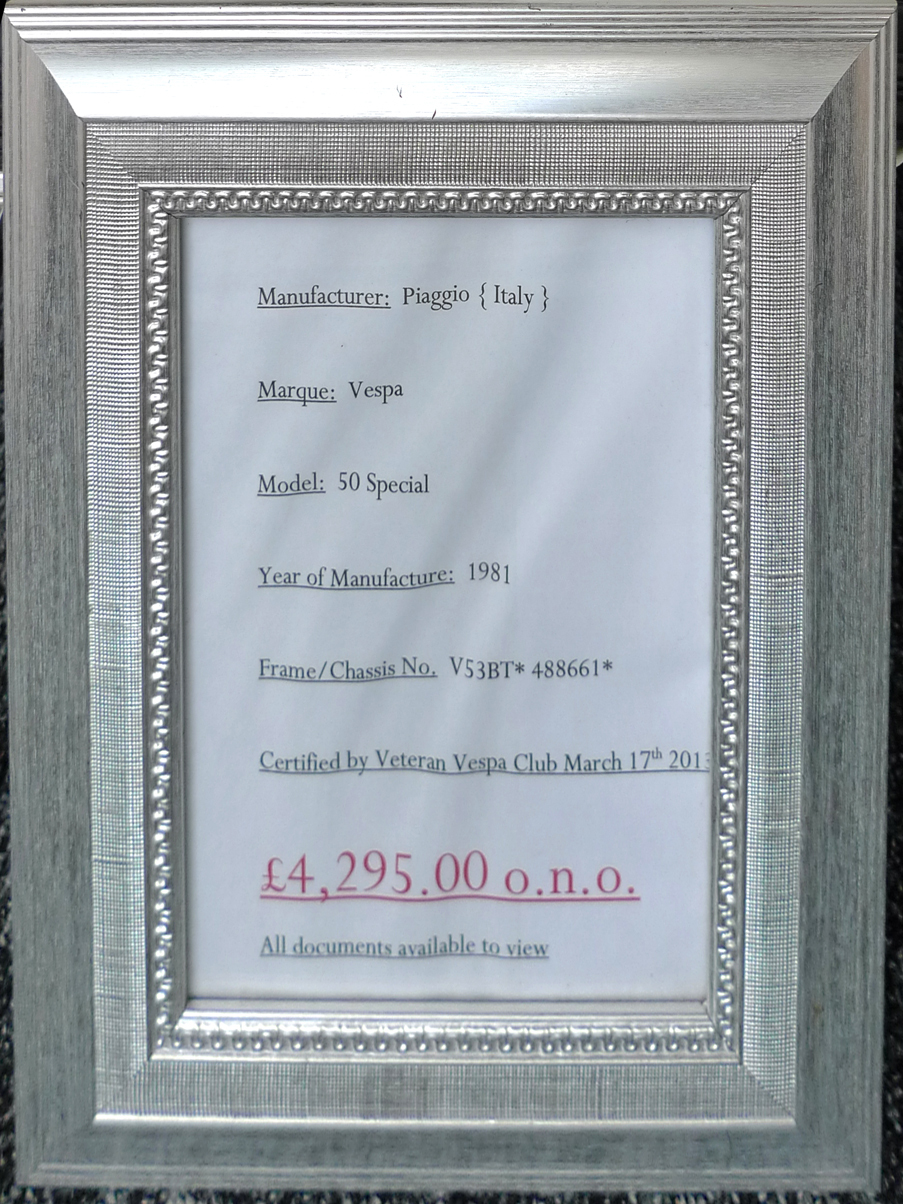 Manufacturer: Piaggio { Italy }
Marque: Vespa
Model: 50 Special
Year of Manufacture: 1981
Frame/Chassis No. V53BT* 488661*
Certified by Veteran Vespa Club March 17th 2013
£4,295.00 o.n.o.
All documents available to view